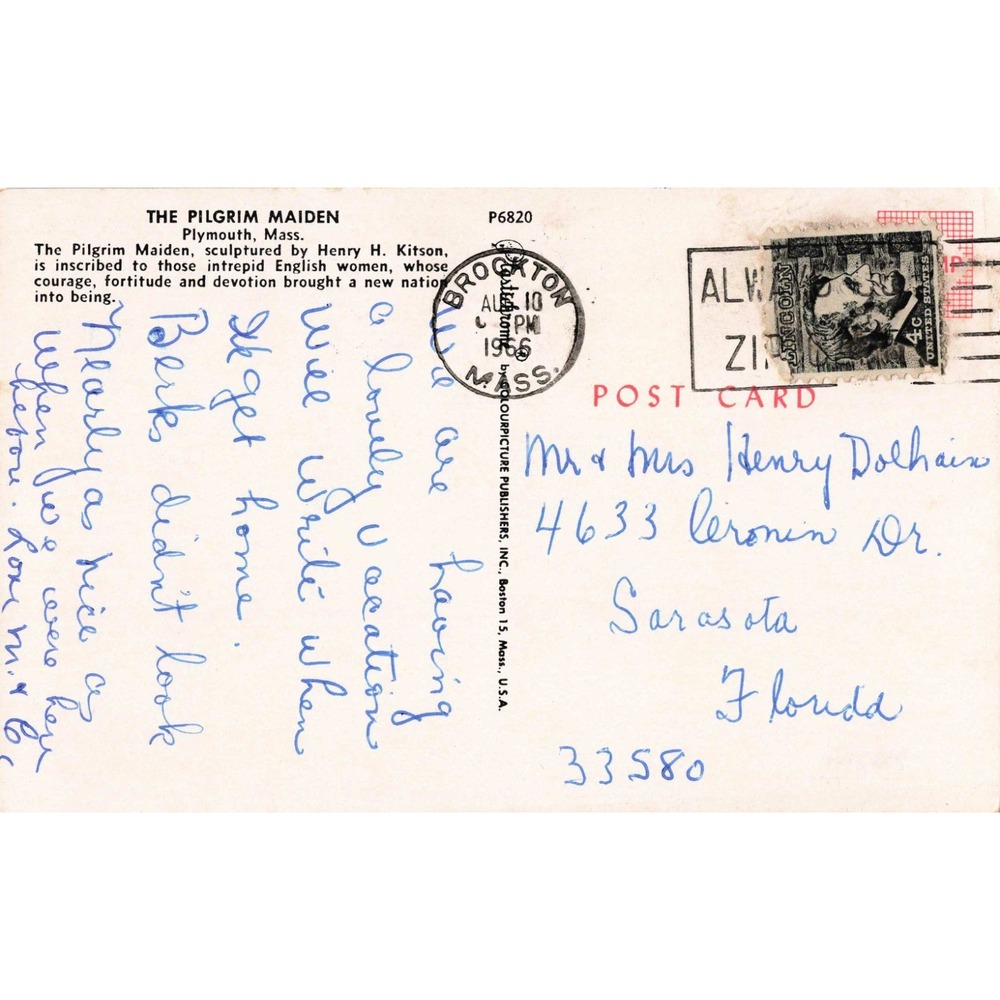 THE PILGRIM MAIDEN
Plymouth, Mass.
The Pilgrim Maiden, sculptured by Henry H. Kitson,
is inscribed to those intrepid English women, whose
courage, fortitude and devotion brought a new nation
into being.
P6820
We are having
a lovely vacation
will write when
I get home.
Berks didn't look
Nearly as nice as
when we were here
before. Love M. &
Plastichrome ® by COLOURPICTURE PUBLISHERS, INC., Boston 15, Mass., U.S.A.
BROCKTON
AUG 10
PM
1966
MASS.
ALW
ZI
LINCOLN
4c
UNITED STATES
POST CARD
Mr & Mrs Henry Dolhain
4633 Ceronin Dr.
Sarasota
Florida
33580